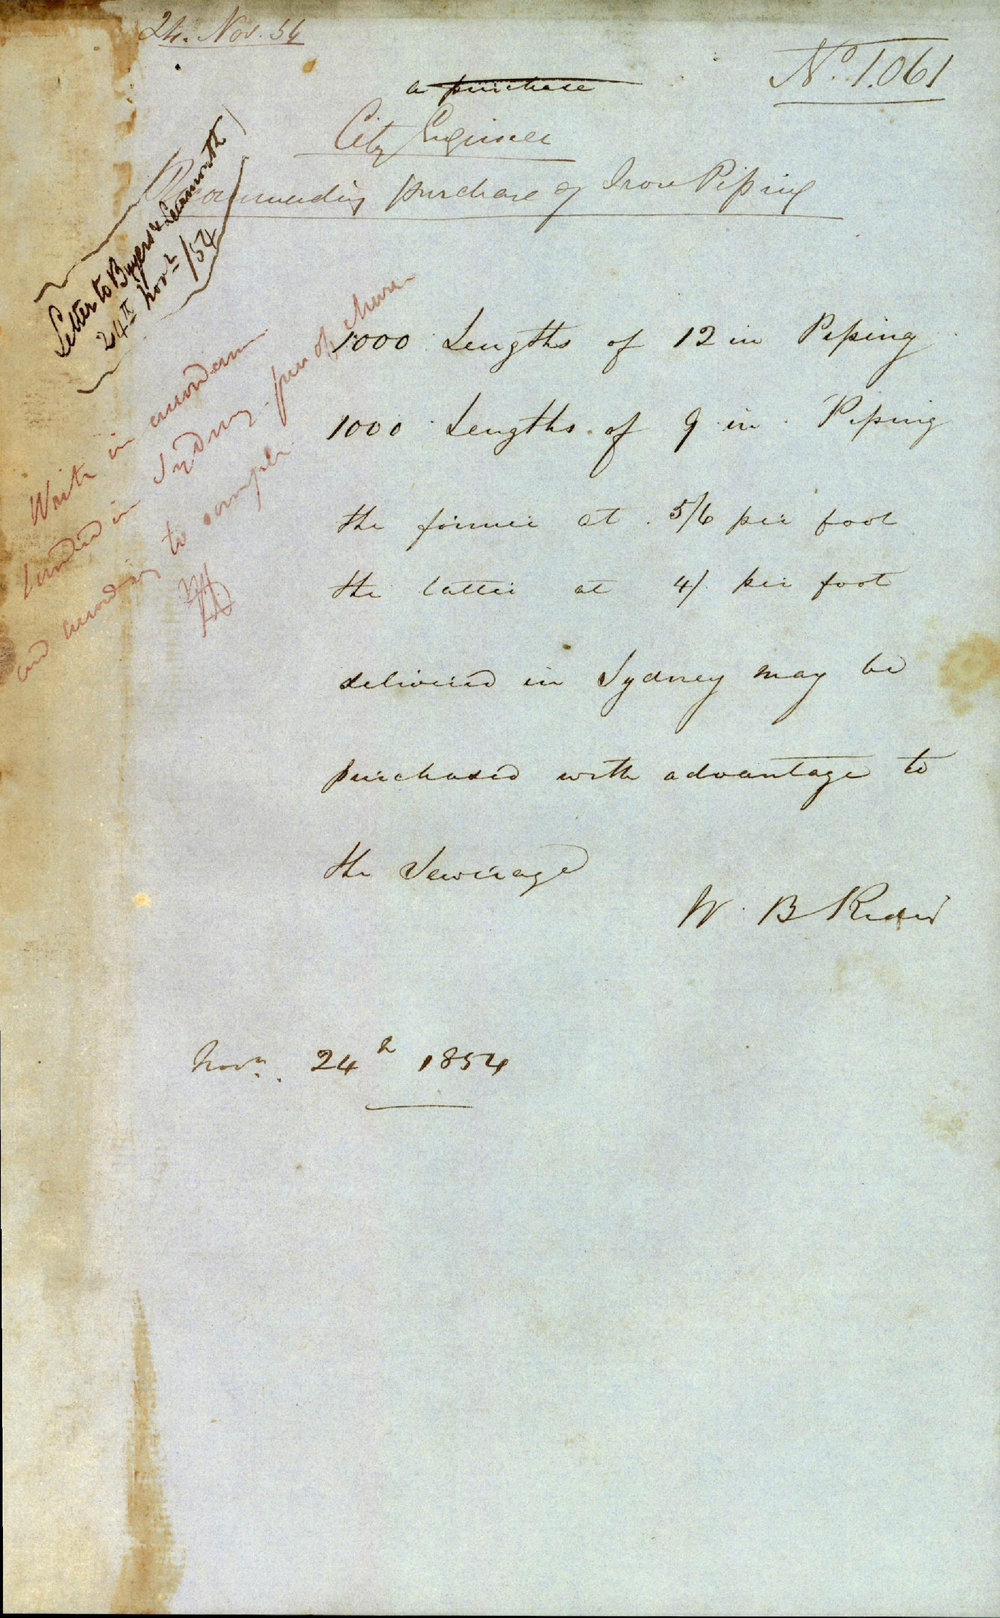 24. Nov. 54
No. 1.061
a purchase
City Engineer
Recommending purchase of Iron Piping
Letter to Buyers & Learmonth
24th Novr /54
Write in accordance
landed in Sydney
and according to sample
1000 Lengths of 12 in Piping
1000 Lengths of 9 in Piping
the former at 5/6 per foot
the latter at 4/ per foot
delivered in Sydney may be
purchased with advantage to
the Sewerage
W. B Rider
Novr. 24th 1854